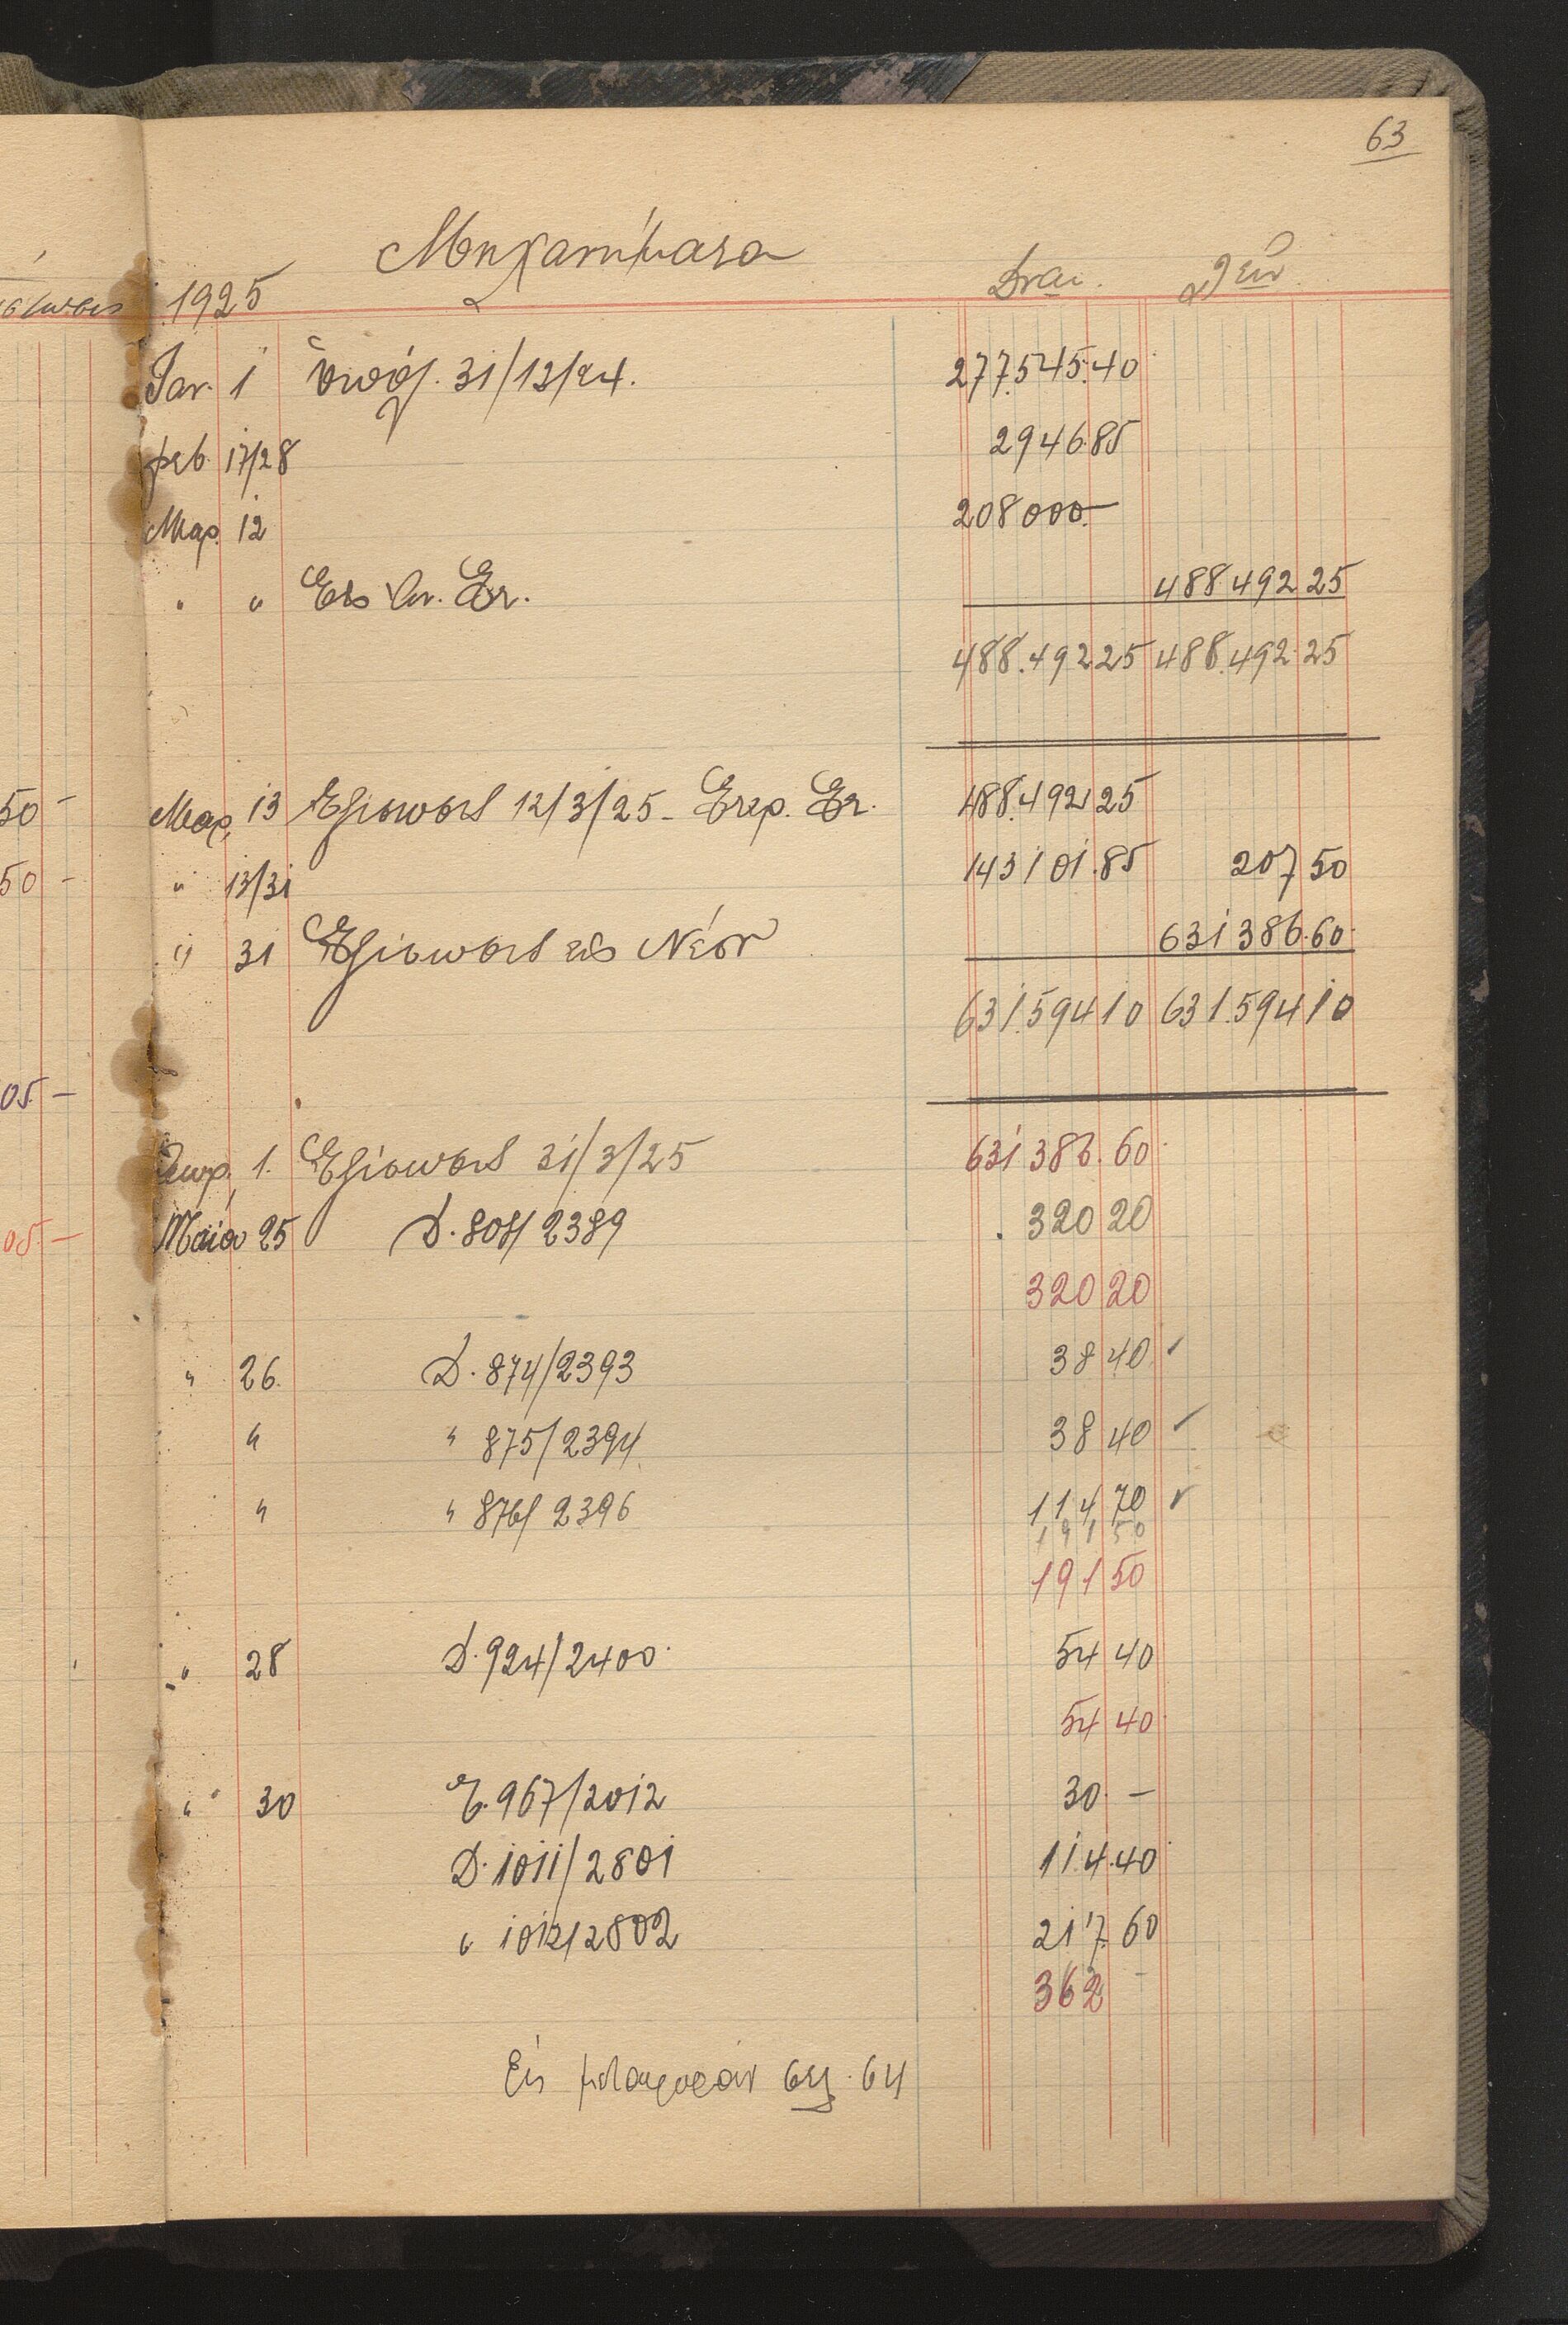 63
Μηχανήματα
1925
Ιαν. 1 Υπόλ. 31/12/24. 277.545.40
Φεβ. 17/28 2946.85
Μαρ. 12 208000.—
" " Εις 488.492 25
488.492 25 488.492 25
50 —
Μαρ. 13 Εξίσωσις 12/3/25 - 488.492 25
50 —
" 13/31 143101.85 207 50
" 31 Εξίσωσις εις Νέον 631386.60
631.594 10 631.594 10
05 —
1. Εξίσωσις 31/3/25 631386.60
05 —
Μαΐου 25 Δ. 808/2389 320 20
320 20
" 26. Δ. 874/2393 38 40 ✓
" " 875/2394 38 40 ✓
" " 876/2396 114 70 ✓
191 50
191 50
" 28 Δ. 924/2400. 54 40
54 40
" 30 967/2012 30. —
Δ. 1011/2801 114.40
" 1012/2802 217. 60
362 —
Εις μεταφοράν σελ. 64